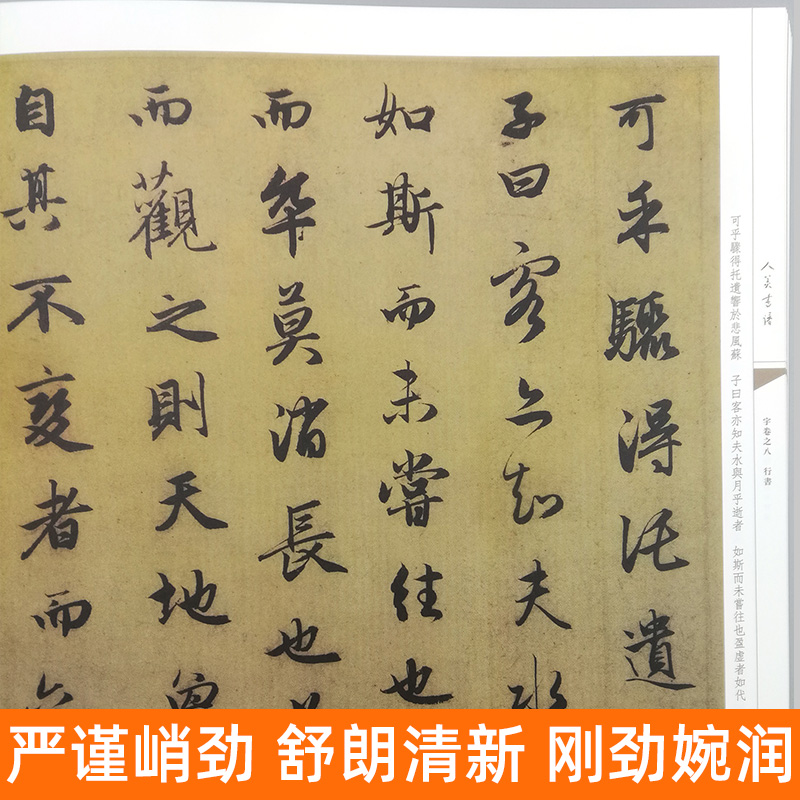 可乎驟得託遺
子曰客亦知夫水
如斯而未嘗往也
而卒莫消長也
而觀之則天地曾
自其不變者而
可乎驟得托遺響於悲風蘇 子曰客亦知夫水與月乎逝者 如斯而未嘗往也盈虛者如代
人美书谱
宇卷之八 行書
严谨峭劲 舒朗清新 刚劲婉润